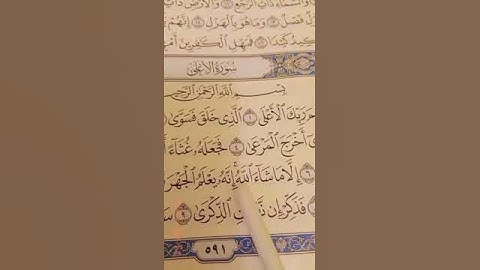 وَٱلسَّمَآءِ ذَاتِ ٱلرَّجْعِ ١١ وَٱلْأَرْضِ ذَاتِ
فَصْلٌ ١٣ وَمَا هُوَ بِٱلْهَزْلِ ١٤ إِنَّهُمْ
كِيدُ كَيْدًا ١٦ فَمَهِّلِ ٱلْكَٰفِرِينَ
سُورَةُ الأَعْلَىٰ
بِسْمِ ٱللَّهِ ٱلرَّحْمَٰنِ ٱلرَّحِيمِ
رَبِّكَ ٱلْأَعْلَى ١ ٱلَّذِى خَلَقَ فَسَوَّىٰ
أَخْرَجَ ٱلْمَرْعَىٰ ٤ فَجَعَلَهُۥ غُثَآءً
٦ إِلَّا مَا شَآءَ ٱللَّهُ ۚ إِنَّهُۥ يَعْلَمُ ٱلْجَهْرَ
فَذَكِّرْ إِن ٱلذِّكْرَىٰ ٩
٥٩١